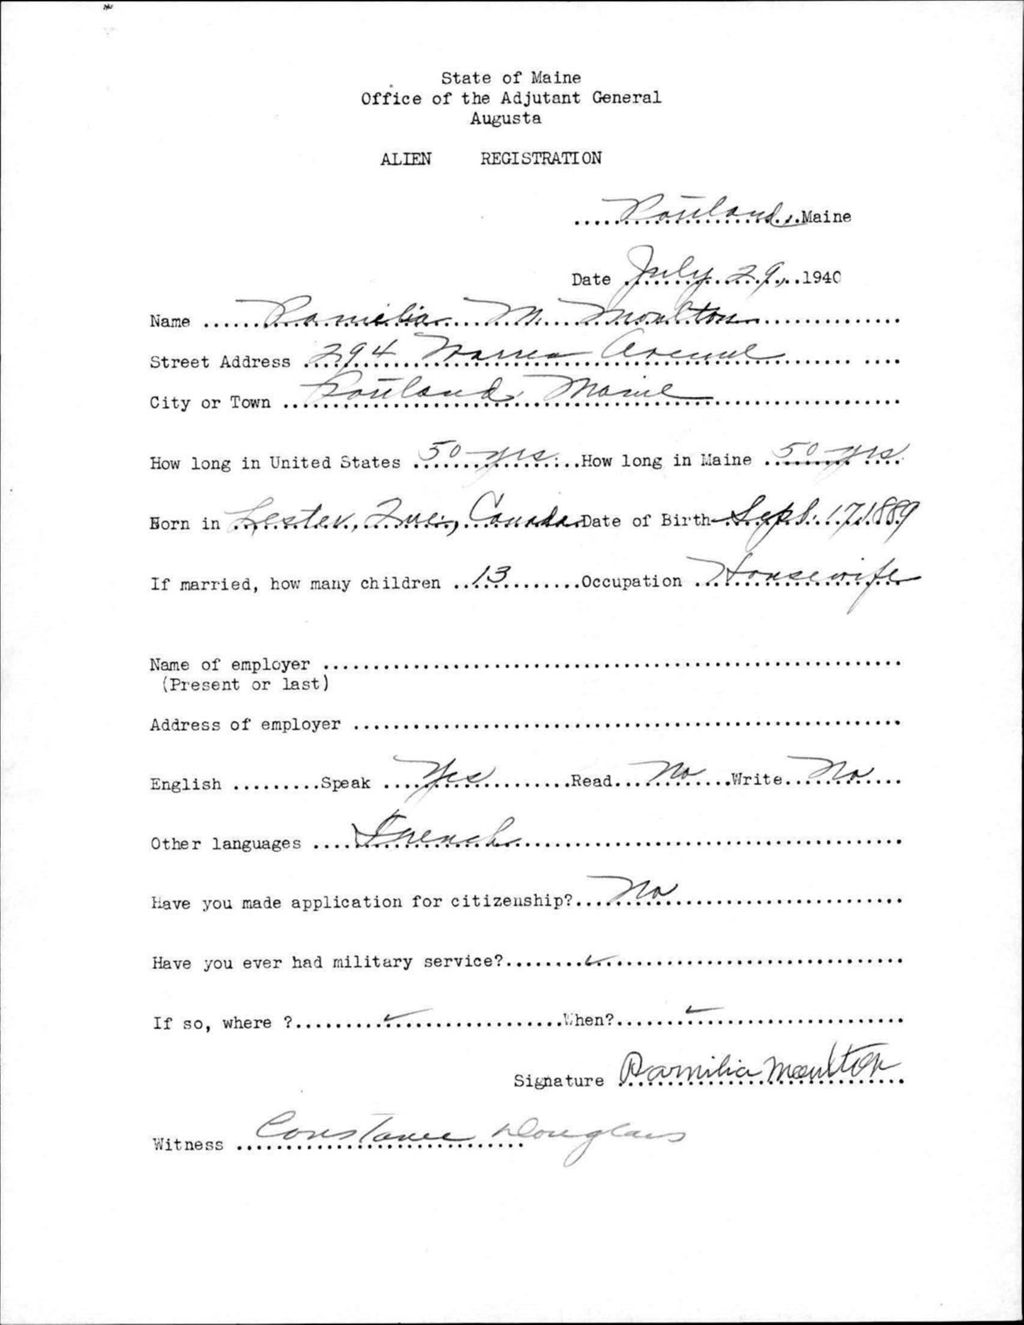 State of Maine
Office of the Adjutant General
Augusta
ALIEN REGISTRATION
Portland, Maine
Date July 29, 1940
Name Ramilia M. Moulton
Street Address 294 Warren Avenue
City or Town Portland, Maine
How long in United States 50 yrs. How long in Maine 50 yrs
Born in Lester, Que., Canada Date of Birth Sept. 17, 1889
If married, how many children 13 Occupation Housewife
Name of employer
(Present or last)
Address of employer
English Speak Yes Read No Write No
Other languages French
Have you made application for citizenship? No
Have you ever had military service? ✓
If so, where ? ✓ When? ✓
Signature Ramilia Moulton
Witness Constance Douglass